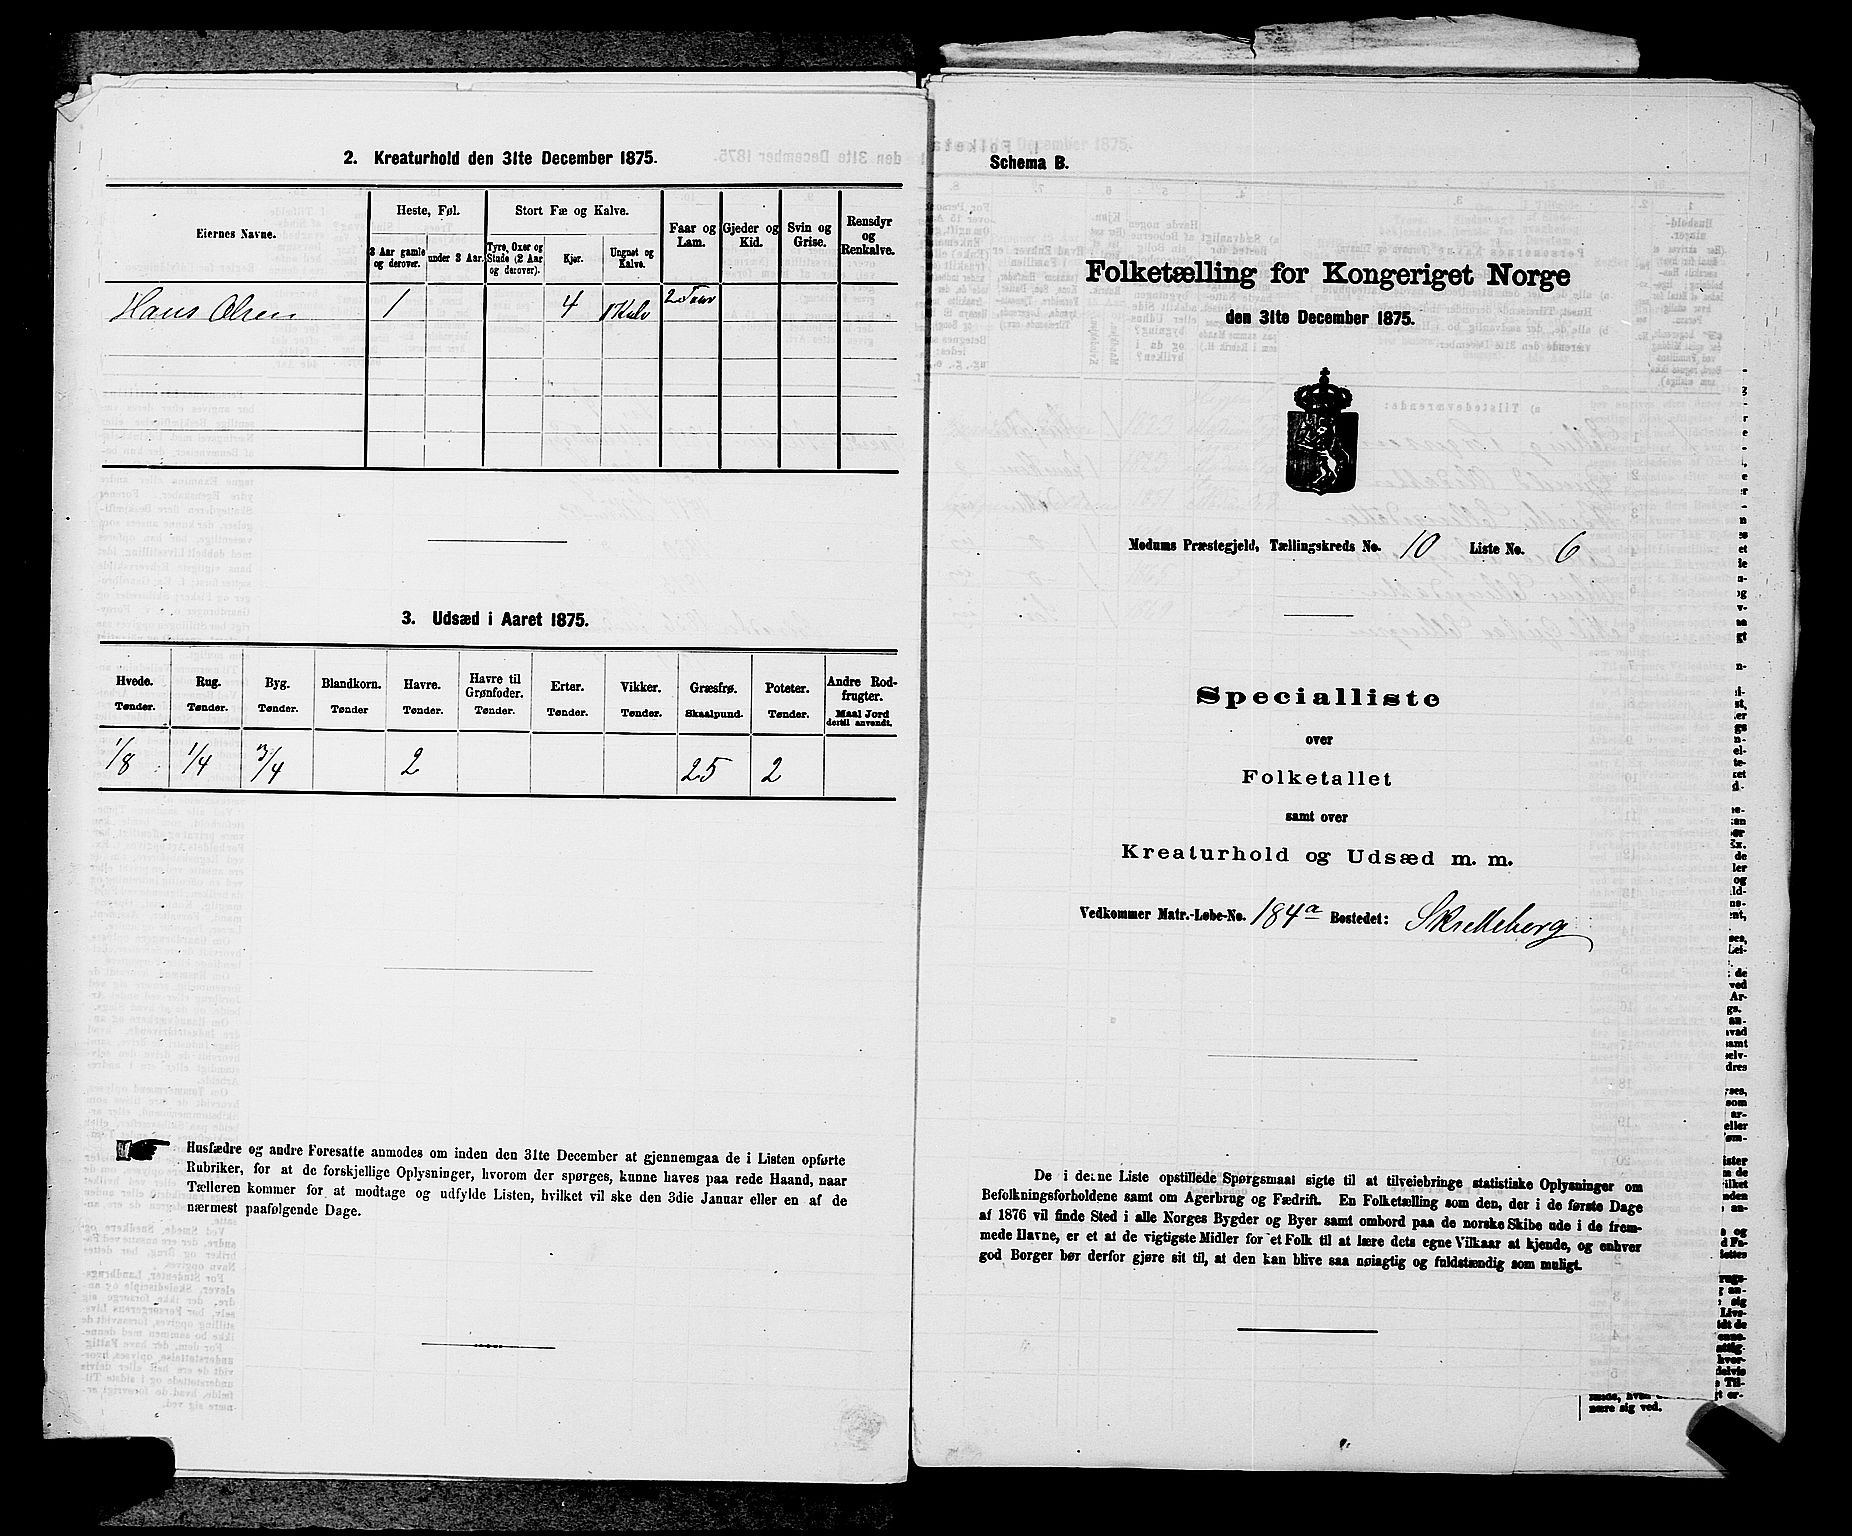 2. Kreaturhold den 31te December 1875.
Eiernes Navne.
Heste, Føl.
3 Aar gamle og derover.
under 3 Aar.
Stort Fæ og Kalve.
Tyre, Oxer og Stude (2 Aar og derover).
Kjør.
Ungnøt og Kalve.
Faar og Lam.
Gjeder og Kid.
Svin og Grise.
Rensdyr og Renkalve.
Hans Olsen 1 4 1 Kalv 2 Faar
3. Udsæd i Aaret 1875.
Hvede. Rug. Byg. Blandkorn. Havre. Havre til Grønfoder. Erter. Vikker. Græsfrø. Poteter. Andre Rodfrugter.
Tønder. Tønder. Tønder. Tønder Tønder. Tønder. Tønder. Tønder. Skaalpund. Tønder. Maal Jord dertil anvendt.
1/8 1/4 3/4 2 25 2
Husfædre og andre Foresatte anmodes om inden den 31te December at gjennemgaa de i Listen opførte
Rubriker, for at de forskjellige Oplysninger, hvorom der spørges, kunne haves paa rede Haand, naar
Tælleren kommer for at modtage og udfylde Listen, hvilket vil ske den 3die Januar eller en af de
nærmest paafølgende Dage.
Schema B.
Folketælling for Kongeriget Norge
den 31te December 1875.
Modums Præstegjeld, Tællingskreds No. 10 Liste No. 6
Specialliste
over
Folketallet
samt over
Kreaturhold og Udsæd m. m.
Vedkommer Matr.-Løbe-No. 184a Bostedet: Skretteberg
De i denne Liste opstillede Spørgsmaal sigte til at tilveiebringe statistiske Oplysninger om
Befolkningsforholdene samt om Agerbrug og Fædrift. En Folketælling som den, der i de første Dage
af 1876 vil finde Sted i alle Norges Bygder og Byer samt ombord paa de norske Skibe ude i de frem-
mede Havne, er et at de vigtigste Midler for et Folk til at lære dets egne Vilkaar at kjende, og enhver
god Borger bør derfor gjøre sit til, at den kan blive saa nøiagtig og fuldstændig som muligt.
nære sig ved.